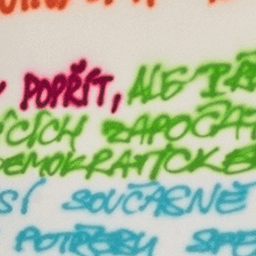 POPŘÍT, ALE PŘE
ÍCÍCH ZAPOČAT
DEMOKRATICKÉ
SÍ SOUČASNĚ
POTŘEBU SPE